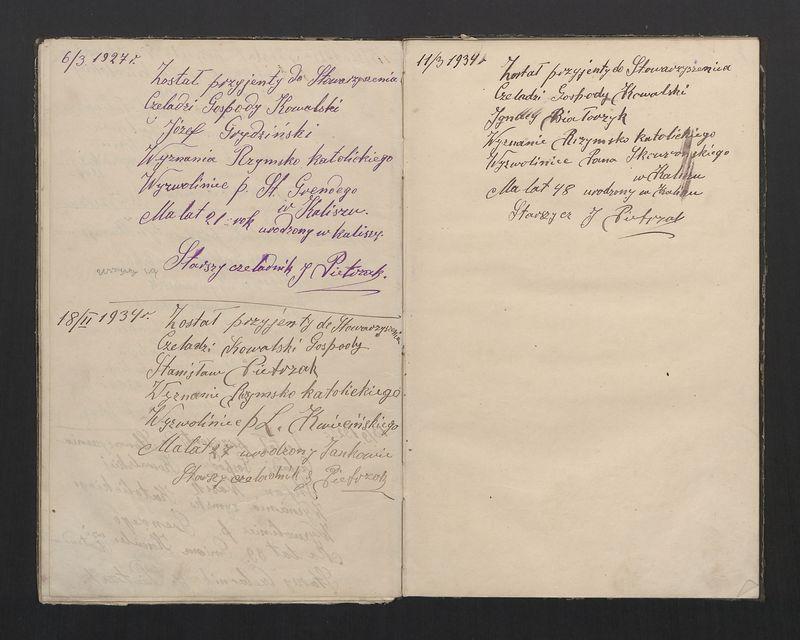 6/3 1927 r.
Został przyjenty do Stowarzyszenia
Czeladzi Gospody Kowalski
Józef Grydziński
Wyznania Rzymsko katolickiego
Wyzwoliniec p. St. Grendego
w Kaliszu.
Ma lat 21 rok urodzony w kaliszy
Starszy czeladnik J Pietrzak.
18/II 1934 r.
Został przyjenty do Stowarzyszenia
Czeladzi Kowalski Gospody
Stanisław Pietrzak
Wyznanie Rzymsko katolickiego.
Wyzwoliniec p L.
Ma lat 27 urodzony Jankowie
Starszy czeladnik J Pietrzak
11/3 1934 r
Został przyjenty do Stowarzyszenica
Czeladzi Gospody Kowalski
Ignacy Białowzyk
Wyznanie Rizymsko katolickiego
Wyzwoliniec Pana
w Kaliszu
Ma lat 48 urodzony w Kalisu
Starszy cz J Pietrzak